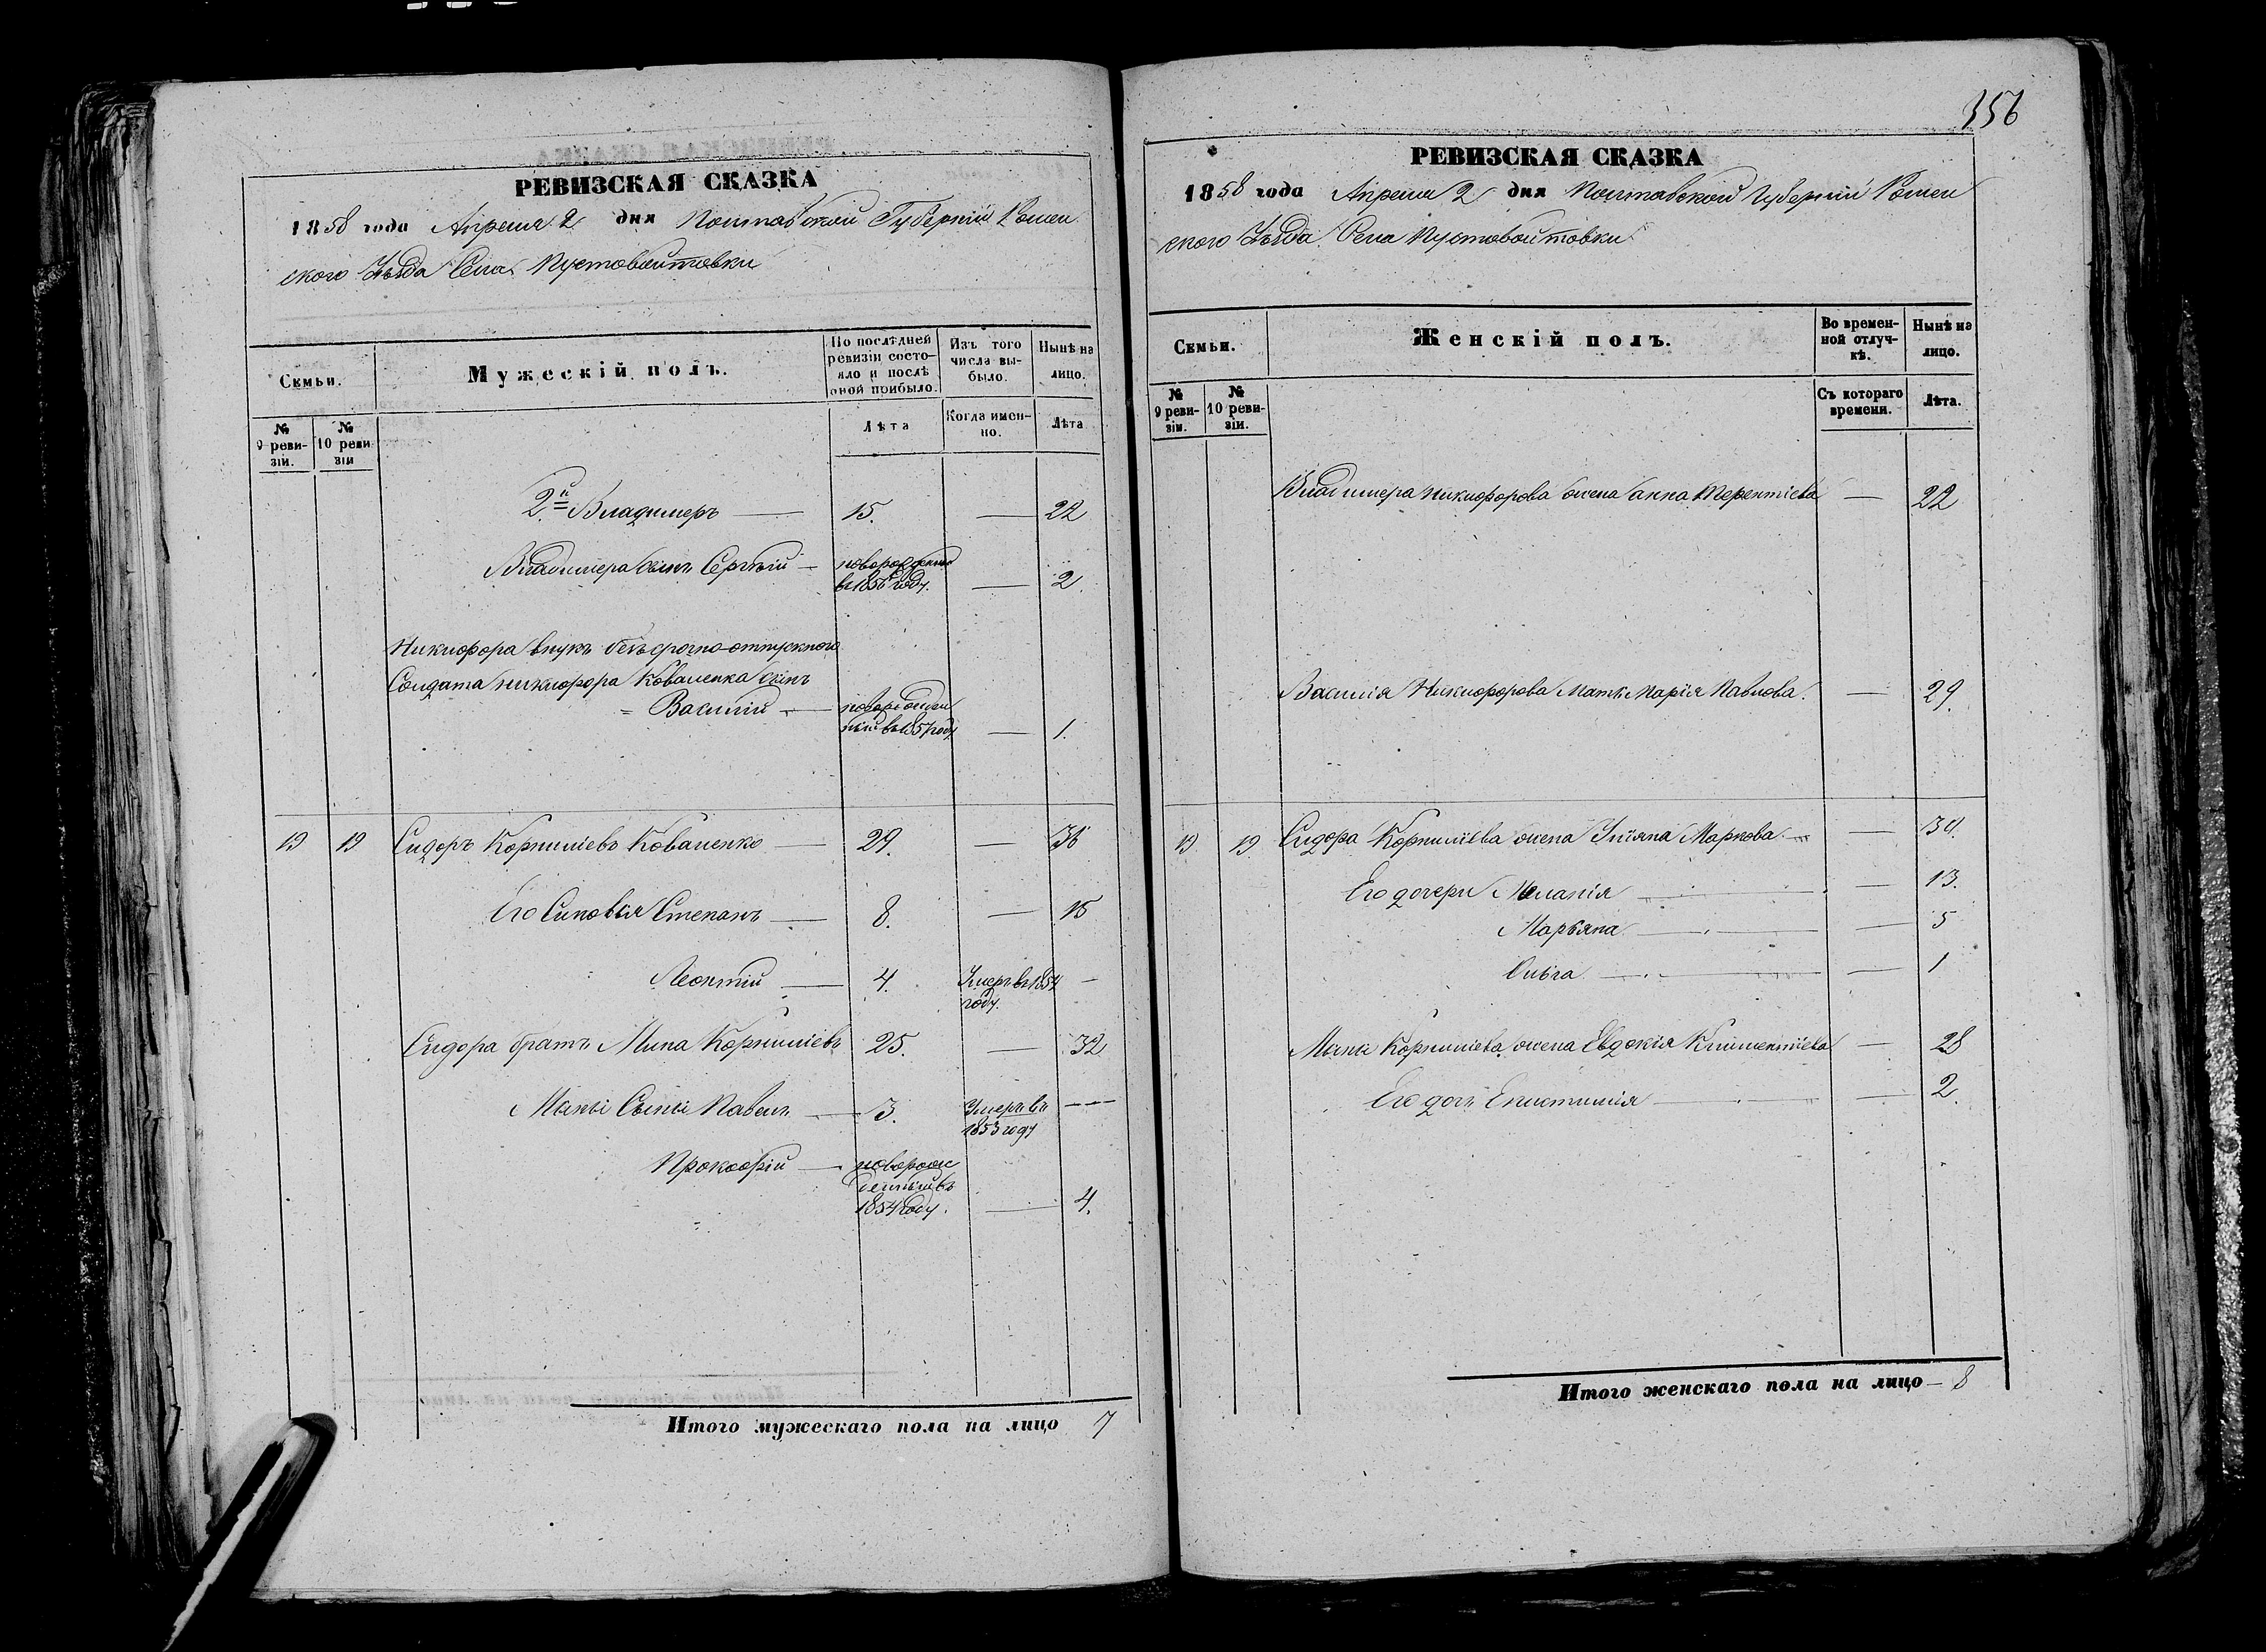 РЕВИЗСКАЯ СКАЗКА
1858 года Апреля 2 дня Полтавской Губерніи Ромен
ского Уѣзда Села Пустовойтовки
Семьи.
Мужескій полъ.
По послѣдней ревизіи состояло и послѣ оной прибыло.
Изъ того числа выбыло.
Нынѣ на лицо.
№ 9 ревизіи.
№ 10 ревизіи
Лѣта
Когда именно.
Лѣта
2й Владимеръ — 15. — 22
Владимера сынъ Сергѣй — новорожденный
в 1856 году. — 2.
Никифора внукъ безсрочно-отпускного
Солдата Никифора Коваленка сынъ
Василій — новорожден
ный въ 1857 году — 1.
19 19 Сидоръ Корниліевъ Коваленко — 29. — 36
Его Сыновья Степанъ — 8. — 15
Леонтій — 4. Умеръ въ 1854 —
году.
Сидора братъ Мина Корниліевъ 25. — 32
Мины Сыны Павелъ — 3. Умеръ въ —
1853 году
Прокофій — новорож
денный въ
1854 году. — 4.
Итого мужескаго пола на лицо 7
356
РЕВИЗСКАЯ СКАЗКА
1858 года Апреля 2 дня Полтавской Губерніи Ромен
ского Уѣзда Села Пустовойтовки
Семьи.
Женскій полъ.
Во временной отлучкѣ.
Нынѣ на лицо.
№ 9 ревизіи.
№ 10 ревизіи.
Съ котораго времени.
Лѣта.
Владимера Никифорова жена Анна Терентіева — 22
Василія Никифорова Мать Марія Павлова. — 29.
19. 19. Сидора Корниліева жена Уліяна Маркова —
Его дочери Меланія — 13.
Марьяна — 5
Ольга — 1
Мины Корниліева жена Евдокія Климентіева — 28
Его дочь Епистимія — 2.
Итого женскаго пола на лицо — 8